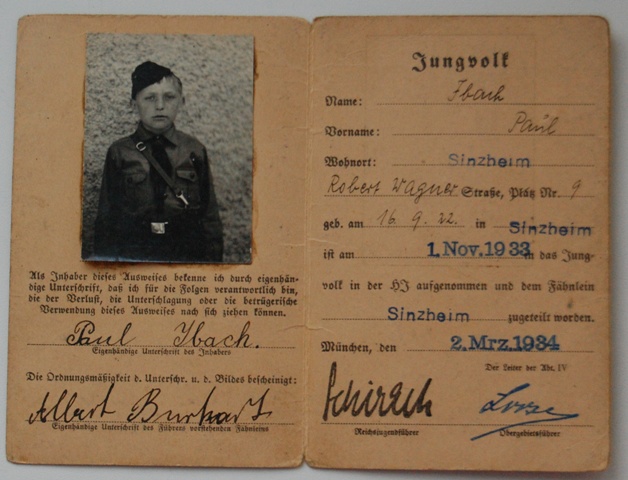 Als Inhaber dieses Ausweises bekenne ich durch eigenhän-
dige Unterschrift, daß ich für die Folgen verantwortlich bin,
die der Verlust, die Unterschlagung oder die betrügerische
Verwendung dieses Ausweises nach sich ziehen können.
Paul Ibach.
Eigenhändige Unterschrift des Inhabers
Die Ordnungsmäßigkeit d. Unterschr. u. d. Bildes bescheinigt:
Albert Burkart
Eigenhändige Unterschrift des Führers vorstehenden Fähnleins
Jungvolk
Name: Ibach
Vorname: Paul
Wohnort: Sinzheim
Robert Wagner Straße, Platz Nr. 9
geb. am 16. 9. 22. in Sinzheim
ist am 1. Nov. 1933 in das Jung-
volk in der HJ aufgenommen und dem Fähnlein
Sinzheim zugeteilt worden.
München, den 2. Mrz. 1934
Der Leiter der Abt. IV
Schirach
Reichsjugendführer Obergebietsführer